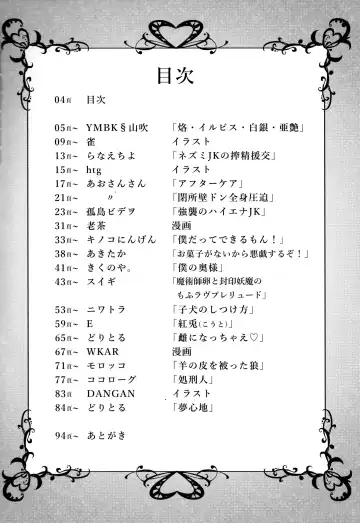 目次
04頁 目次
05頁~ YMBK§山吹 「烙・イルビス・白銀・亜艶」
09頁~ 雀 イラスト
13頁~ らなえちよ 「ネズミJKの搾精援交」
15頁~ htg イラスト
17頁~ あおさんさん 「アフターケア」
21頁~ 〃 「閉所壁ドン全身圧迫」
23頁~ 孤島ビデヲ 「強襲のハイエナJK」
31頁~ 老茶 漫画
33頁~ キノコにんげん 「僕だってできるもん!」
38頁~ あきたか 「お菓子がないから悪戯するぞ!」
41頁~ きくのや。 「僕の奥様」
43頁~ スイギ 「魔術師卵と封印妖魔の
もふラヴプレリュード」
53頁~ ニワトラ 「子犬のしつけ方」
59頁~ E 「紅兎(こうと)」
65頁~ どりとる 「雌になっちゃえ♡」
67頁~ WKAR 漫画
71頁~ モロッコ 「羊の皮を被った狼」
77頁~ ココローグ 「処刑人」
83頁 DANGAN イラスト
84頁~ どりとる 「夢心地」
94頁~ あとがき